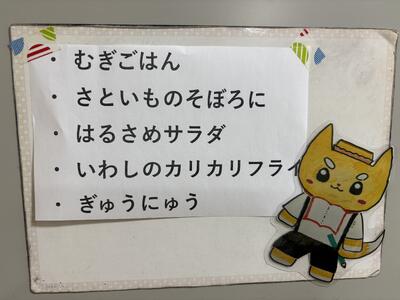 ・むぎごはん
・さといものそぼろに
・はるさめサラダ
・いわしのカリカリフライ
・ぎゅうにゅう